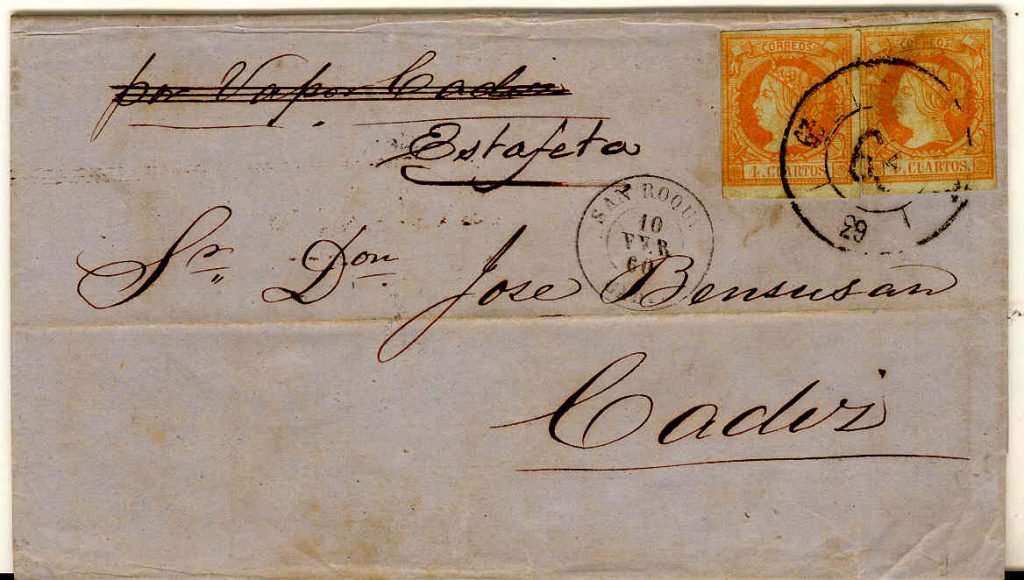 CORREOS CORREOS
4 CUARTOS 4 CUARTOS
por Vapor Cadiz
Estafeta
SAN ROQUE
10
FEB
60
29
Sr. Don Jose Bensusan
Cadiz